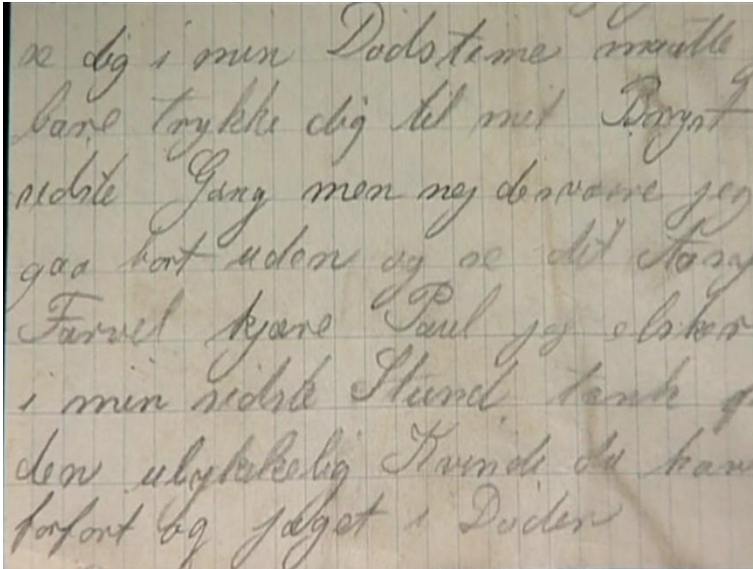 se dig i min Dødstime maatte
bare trykke dig til mit Bryst
sidste Gang men nej desværre jeg
gaa bort uden og se dit
Farvel kjære Paul jeg elsker
i min sidste Stund tænk
den ulykkelig Kvinde du har
forført og jaget i Døden